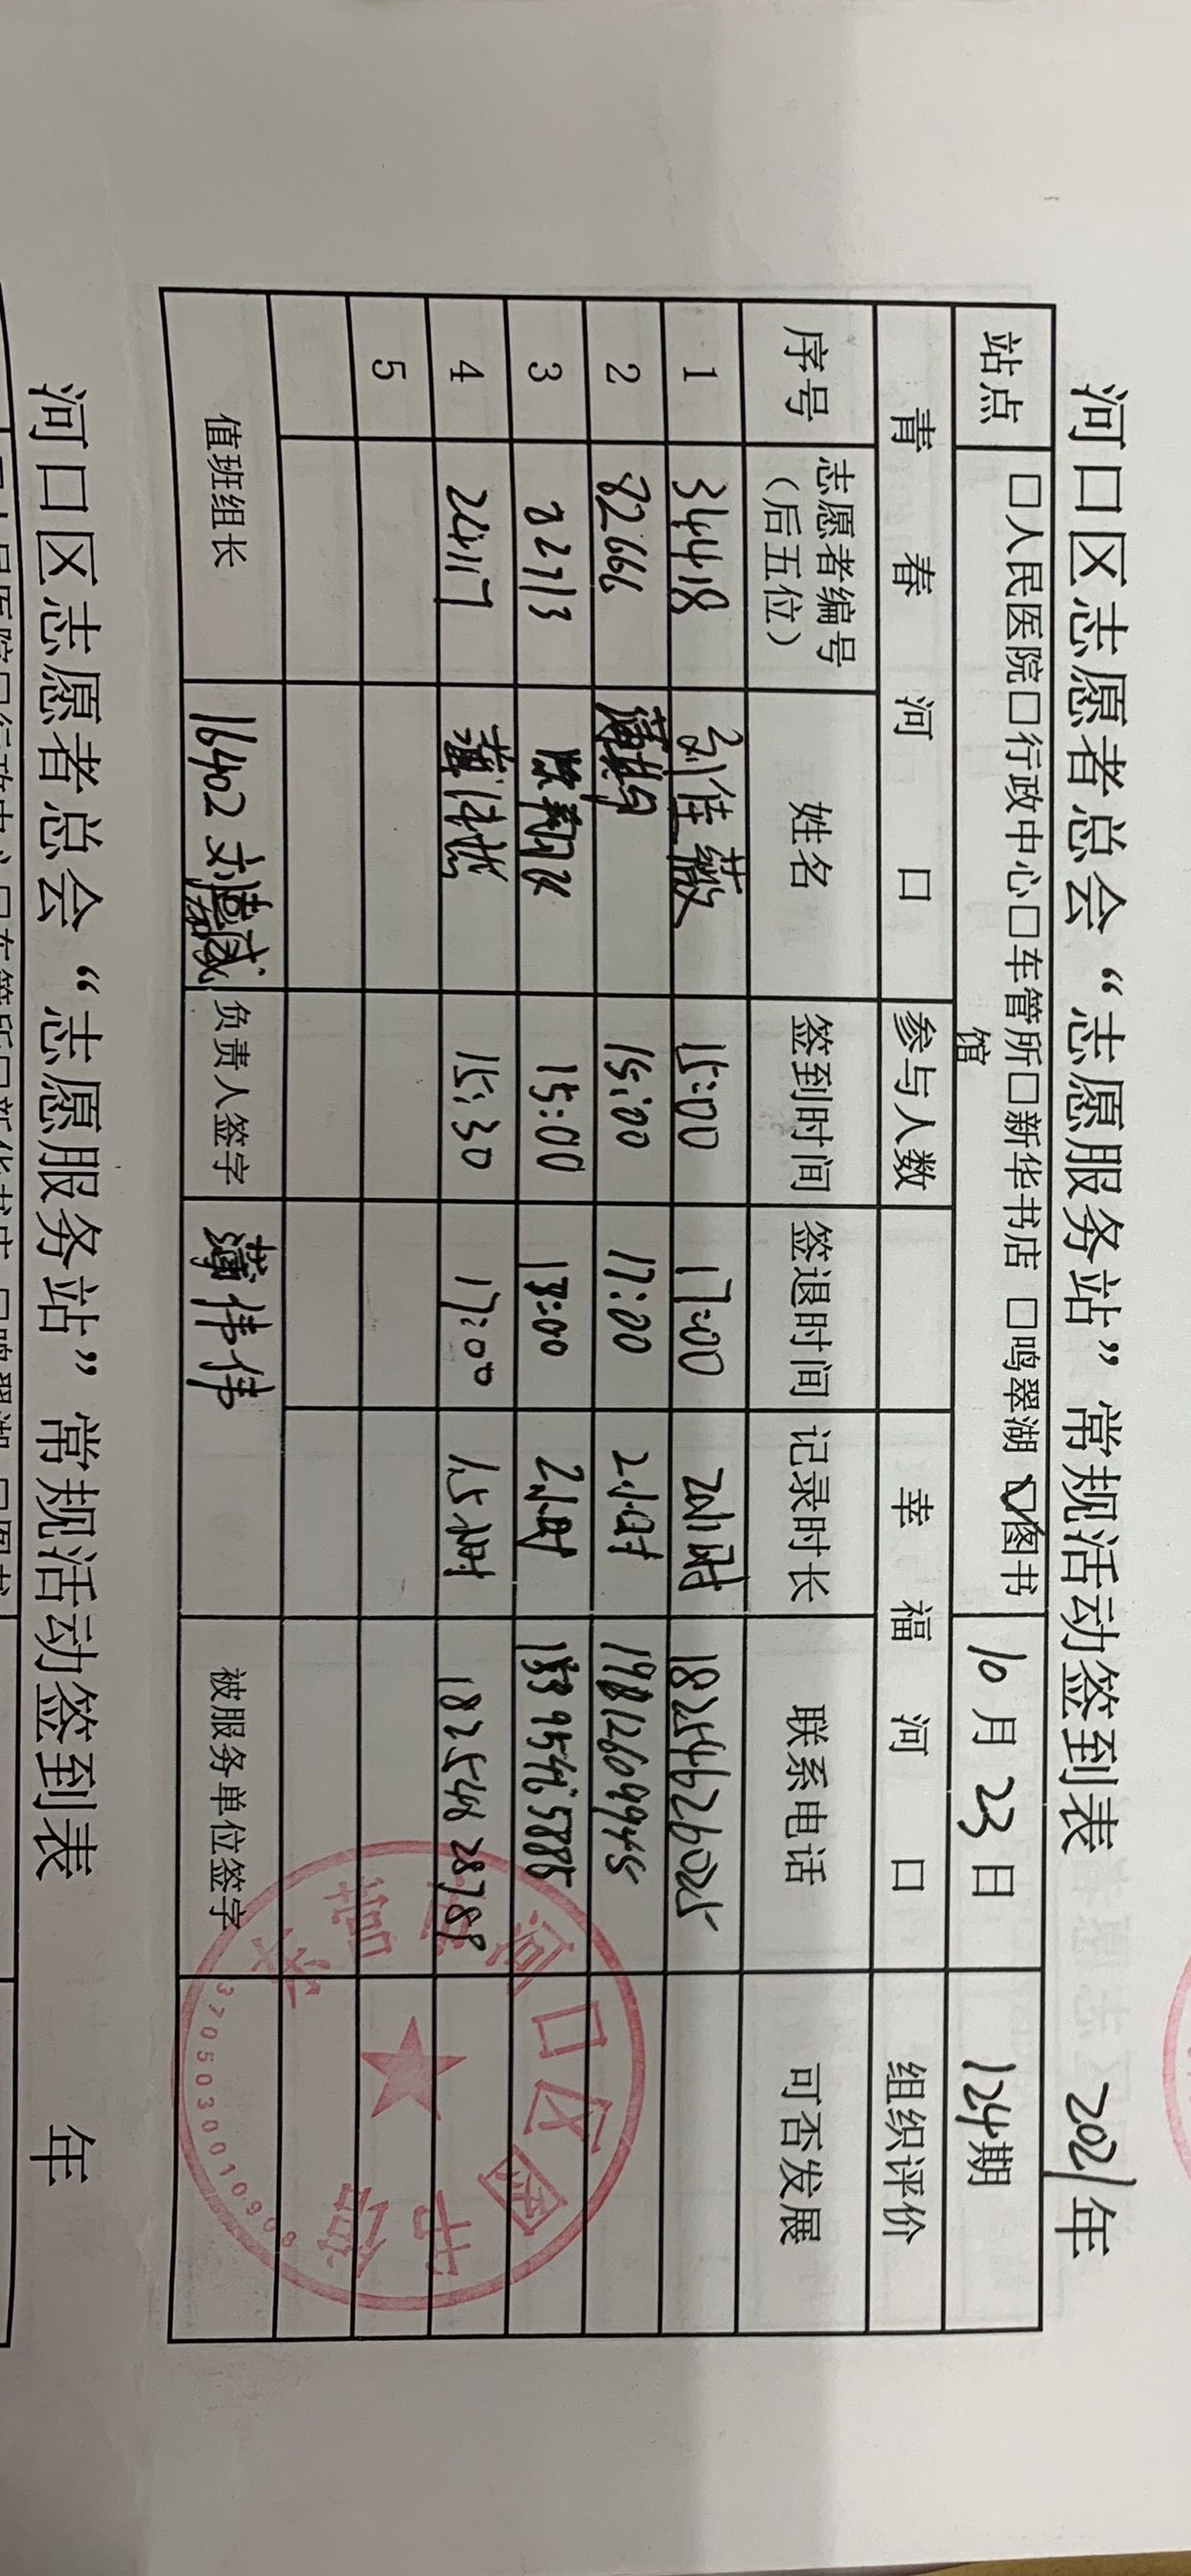 河口区志愿者总会“志愿服务站”常规活动签到表 2021年
站点 □人民医院□行政中心□车管所□新华书店 □鸣翠湖 ☑图书馆 10月23日 124期
青春河口 参与人数 幸福河口 组织评价
序号 志愿者编号（后五位） 姓名 签到时间 签退时间 记录时长 联系电话 可否发展
1 34418 刘佳薇 15:00 17:00 2小时 18254626025
2 82666 15:00 17:00 2小时 19812609945
3 82713 15:00 2小时
4 24117 15:30 17:00 1.5小时 18254628789
5
值班组长 16402 负责人签字 薄伟伟 被服务单位签字
河口区图书馆
3705030010908
河口区志愿者总会“志愿服务站”常规活动签到表 年